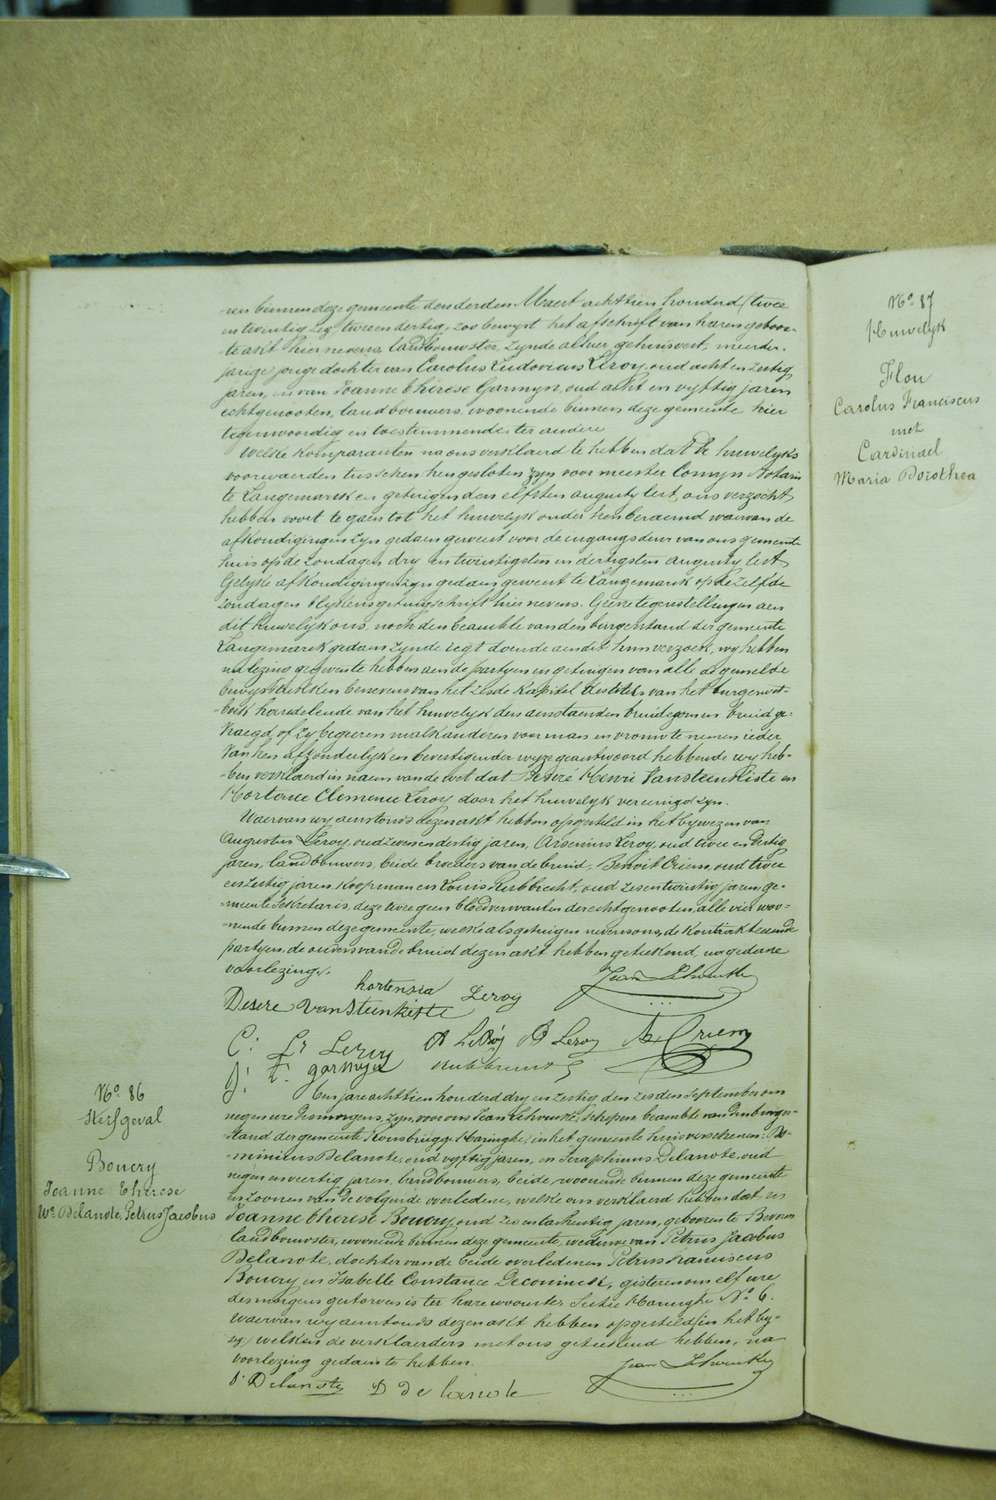 ren binnen deze gemeente den derden Maert achttien honderd twee
en twintig zeg tweeendertig, zoo bewyst het afschrift van haren geboor-
te akt hier nevens, landbouwster, zynde alhier gehuisvest, meerder-
jarige jonge dochter van Carolus Ludovicus Leroy, oud acht en zestig
jaren, en van Joanne Thérèse Garmyn, oud acht en vyftig jaren
echtgenooten, landbouwers, woonende binnen deze gemeente hier
tegenwoordig en toestemmende ter andere
Welke komparanten na ons verklaerd te hebben dat de huwelyks
voorwaerden tusschen hen gesloten zyn voor meester Comyn Notaris
te Langemarck en getuigen den elfsten augusty lest, ons verzocht
hebben voort te gaen tot het huwelyk onder hen beraemd waervan de
afkondigingen zyn gedaen geweest voor de ingangsdeur van ons gemeente
huis op de zondagen dry en twintigsten en dertigsten augusty lest
Gelyke afkondigingen zyn gedaen geweest te Langemarck op de zelfde
zondagen blykens getuigschrift hier nevens. Geene tegenstellingen aen
dit huwelyk ons, noch den beambte van den burgerstand der gemeente
Langemarck gedaen zynde regt doende aen dit hun verzoek, wy hebben
na lezing gegeven te hebben aen de partyen en getuigen van alle de gemelde
bewysstukken benevens van het zesde kapittel des titels van het burgerwet-
boek handelende van het huwelyk den aenstaenden bruidegom en bruid ge-
vraegd of zy begeeren malkanderen voor man en vrouw te nemen ieder
van hen afzonderlyk en bevestigender wyze geantwoord hebbende wy heb-
ben verklaerd in naem van de wet dat Desiré Henri Vansteenkiste en
Hortence Clemence Leroy door het huwelyk vereenigd zyn.
Waervan wy aenstonds dezen akt hebben opgesteld in het bywezen van
Augustin Leroy, oud zevenendertig jaren, Arsenius Leroy, oud twee en dertig
jaren, landbouwers, beide broeders van de bruid, Benoit Criem, oud twee
en zestig jaren koopman en Louis Rubbrecht, oud zesentwintig jaren, ge-
meente sekretaris, deze twee geen bloedverwanten der echtgenooten, alle vier woo-
nende binnen deze gemeente, welke als getuigen nevens ons, de kontrakteerende
partyen, de ouders van de bruid dezen akt hebben geteekend, na gedane
voorlezing.
hortensia Leroy
Desire VanSteenkiste
C: Lr Leroy A Leroy
J: T: garmyn
No 86
Sterfgeval
Boucry
Joanne Thérèse
We Delanote, Petrus Jacobus
Ten jare achttien honderd dry en zestig, den zesden September om
negen ure 's morgens, zyn, voor ons Jean Schoucke, schepen beambte van den burger-
stand der gemeente Roesbrugge-Haringhe, in het gemeente huis verschenen: Do-
minicus Delanote, oud vyftig jaren, en Seraphinus Delanote, oud
negen en veertig jaren, landbouwers, beide woonende binnen deze gemeente
en zoonen van de volgende overledene, welke ons verklaerd hebben dat
Joanne Thérèse Boucry, oud zevenentachtentig jaren, geboren te Beveren
landbouwster, woonende binnen deze gemeente, weduwe van Petrus Jacobus
Delanote, dochter van de beide overledenen Petrus Franciscus
Boucry en Isabelle Constance Deconinck, gisteren om elf ure
des morgens gestorven is ter hare woonste Sectie Haringhe No 6.
waervan wy aenstonds dezen akt hebben opgesteld in het by-
zyn welken de verklaerders met ons geteekend hebben, na
voorlezing gedaen te hebben.
S. Delanote D Delanote
No 87
Huwelyk
Flou
Carolus Franciscus
met
Cardinael
Maria Dorothea